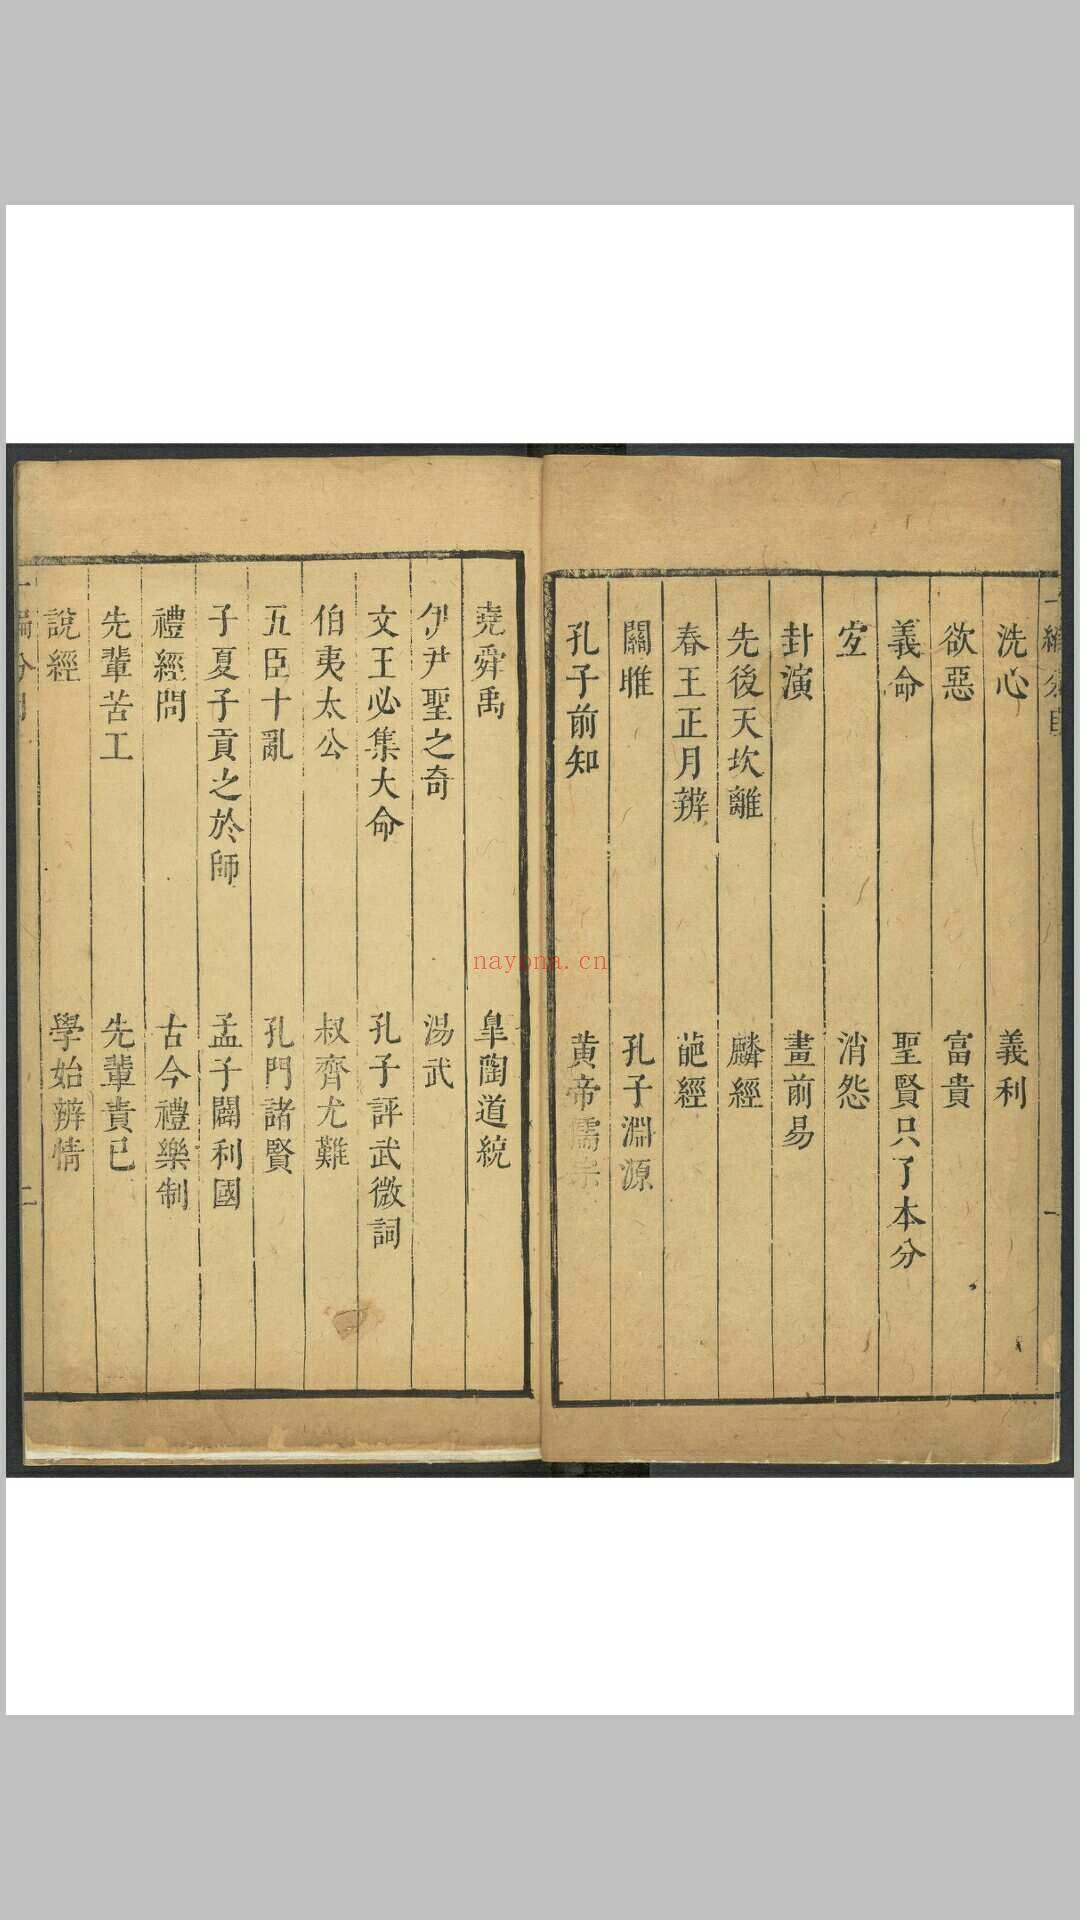 洗心 義利
欲惡 富貴
義命 聖賢只了本分
消怨
卦演 畫前易
先後天坎離 麟經
春王正月辨 葩經
關雎 孔子淵源
孔子前知 黄帝儒宗
堯舜禹 臯陶道統
伊尹聖之奇 湯武
文王必集大命 孔子評武微詞
伯夷太公 叔齊尤難
五臣十亂 孔門諸賢
子夏子貢之於師 孟子闢利國
禮經問 古今禮樂制
先輩苦工 先輩責已
說經 學始辨情
二
nayona.cn